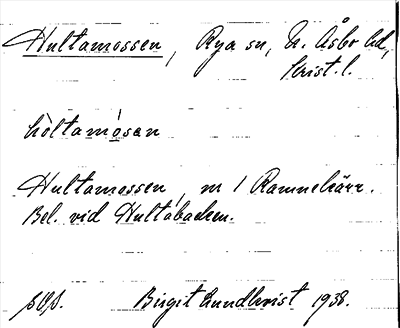 Hultamossen, Rya sn, N. Åsbo hd,
Krist. l.
hòltamósan
Hultamossen, m / Ramnekärr.
Bel. vid Hultabacken.
Birgit Lundkvist 1938.